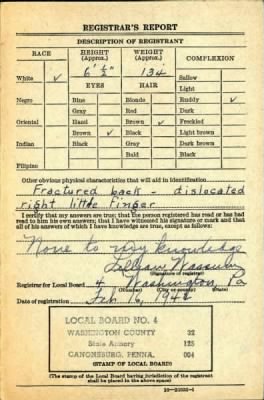 REGISTRAR'S REPORT
DESCRIPTION OF REGISTRANT
RACE HEIGHT (Approx.) WEIGHT (Approx.) COMPLEXION
6' ½" 134
White ✓ EYES HAIR Sallow
Light
Negro Blue Blonde Ruddy ✓
Gray Red Dark
Oriental Hazel Brown ✓ Freckled
Brown ✓ Black Light brown
Indian Black Gray Dark brown
Bald Black
Filipino
Other obvious physical characteristics that will aid in identification
Fractured back - dislocated
right little finger
I certify that my answers are true; that the person registered has read or has had
read to him his own answers; that I have witnessed his signature or mark and that
all of his answers of which I have knowledge are true, except as follows:
None to my knowledge
Lillyan
(Signature of registrar)
Registrar for Local Board 4 Washington, Pa
(Number) (City or county) (State)
Date of registration Feb 16, 1942
LOCAL BOARD NO. 4
WASHINGTON COUNTY 32
State Armory 125
CANONSBURG, PENNA. 004
(STAMP OF LOCAL BOARD)
(The stamp of the Local Board having jurisdiction of the registrant
shall be placed in the above space)